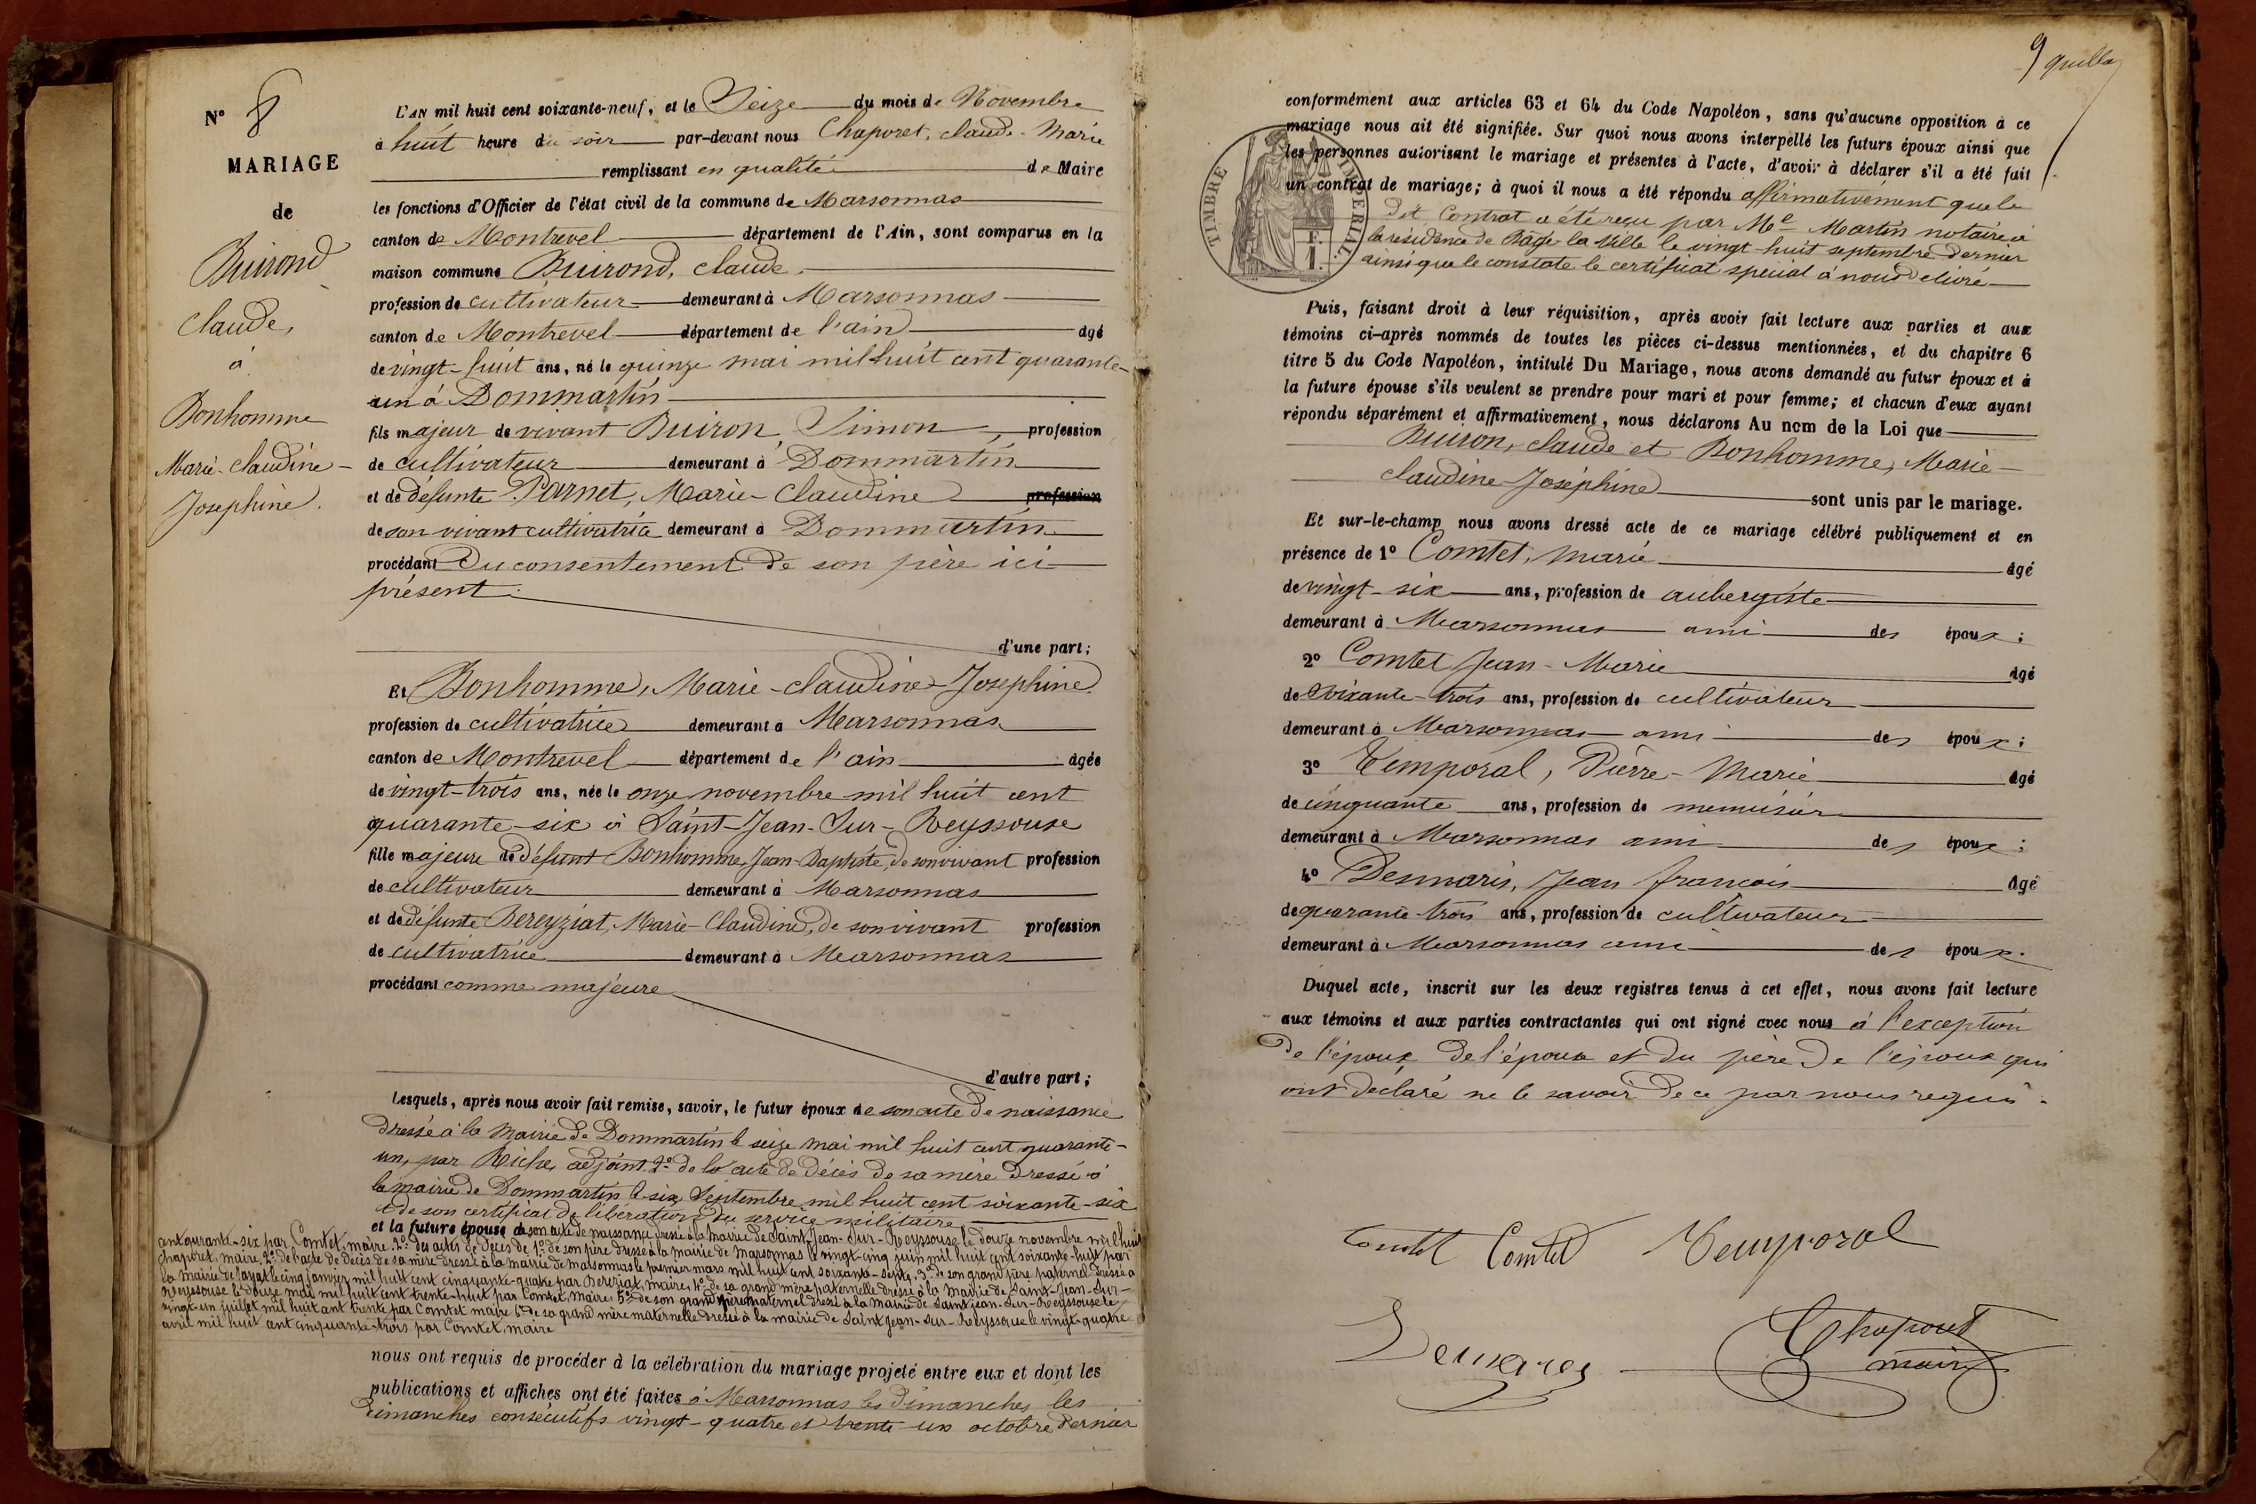 N° 8
MARIAGE
de
Buirond
Claude,
à
Bonhomme
Marie-Claudine-
Josephine.
L'AN mil huit cent soixante-neuf, et le Seize du mois de Novembre
à huit heure du soir par-devant nous Chaporet, Claude-Marie
remplissant en qualité de Maire
les fonctions d'Officier de l'état civil de la commune de Marsonnas
canton de Montrevel département de l'Ain, sont comparus en la
maison commune Buirond, Claude,
profession de cultivateur demeurant à Marsonnas
canton de Montrevel département de l'ain âgé
de vingt-huit ans, né le quinze mai mil huit cent quarante-
un à Dommartin
fils majeur de vivant Buiron, Simon, profession
de cultivateur demeurant à Dommartin
et de défunte Parnet, Marie-Claudine profession
de son vivant cultivatrice demeurant à Dommartin
procédant du consentement de son père ici
présent.
d'une part;
Et Bonhomme, Marie-Claudine-Josephine
profession de cultivatrice demeurant à Marsonnas
canton de Montrevel département de l'ain âgée
de vingt-trois ans, née le onze novembre mil huit cent
quarante-six à Saint-Jean-Sur-Reyssouse
fille majeure de défunt Bonhomme, Jean-Baptiste, de son vivant profession
de cultivateur demeurant à Marsonnas
et de défunte Bereyziat, Marie-Claudine, de son vivant profession
de cultivatrice demeurant à Marsonnas
procédant comme majeure
d'autre part;
Lesquels, après nous avoir fait remise, savoir, le futur époux de son acte de naissance
dressé à la Mairie de Dommartin le seize mai mil huit cent quarante-
un, par Riche, adjoint 2° de l'acte de décès de sa mère dressé à
la mairie de Dommartin le six Septembre mil huit cent soixante-six
et de son certificat de libération du service militaire
et la future épouse de son acte de naissance dressé à la Mairie de Saint-Jean-Sur-Reyssouse le douze novembre mil huit
cent quarante-six par Comtet, maire. 2° des actes de décès de 1° de son père dressé à la mairie de Marsonnas le vingt-cinq juin mil huit cent soixante-huit par
Chaporet, maire, 2° de l'acte de décès de sa mère dressé à la mairie de Marsonnas le premier mars mil huit cent soixante-sept, 3° de son grand père paternel dressé à
la Mairie de Jayat le cinq janvier mil huit cent cinquante-quatre par Bereyziat, maire, 4° de sa grand mère paternelle dressé à la Mairie de Saint-Jean-Sur-
Reyssouse le douze mai mil huit cent trente-huit par Comtet, Maire, 5° de son grand père maternel dressé à la Mairie de Saint Jean-Sur-Reyssouse le
vingt-un juillet mil huit cent trente par Comtet maire 6° de sa grand mère maternelle dressé à la mairie de Saint Jean-Sur-Reyssouse le vingt-quatre
avril mil huit cent cinquante-trois par Comtet, maire
nous ont requis de procéder à la célébration du mariage projeté entre eux et dont les
publications et affiches ont été faites à Marsonnas les dimanches les
dimanches consécutifs vingt-quatre et trente-un octobre dernier
9
conformément aux articles 63 et 64 du Code Napoléon, sans qu'aucune opposition à ce
mariage nous ait été signifiée. Sur quoi nous avons interpellé les futurs époux ainsi que
les personnes autorisant le mariage et présentes à l'acte, d'avoir à déclarer s'il a été fait
un contrat de mariage; à quoi il nous a été répondu affirmativement que le
dit Contrat a été reçu par Me Martin notaire à
la résidence de Bâgé la Ville le vingt-huit septembre dernier
ainsi que le constate le certificat spécial à nous délivré
TIMBRE IMPERIAL
Puis, faisant droit à leur réquisition, après avoir fait lecture aux parties et aux
témoins ci-après nommés de toutes les pièces ci-dessus mentionnées, et du chapitre 6
titre 5 du Code Napoléon, intitulé Du Mariage, nous avons demandé au futur époux et à
la future épouse s'ils veulent se prendre pour mari et pour femme; et chacun d'eux ayant
répondu séparément et affirmativement, nous déclarons Au nom de la Loi que
Buiron, Claude et Bonhomme, Marie-
Claudine-Joséphine sont unis par le mariage.
Et sur-le-champ nous avons dressé acte de ce mariage célébré publiquement et en
présence de 1° Comtet, Marie âgé
de vingt-six ans, profession de aubergiste
demeurant à Marsonnas ami des époux;
2° Comtet Jean-Marie âgé
de soixante-trois ans, profession de cultivateur
demeurant à Marsonnas ami des époux;
3° Temporal, Pierre-Marie âgé
de cinquante ans, profession de menuisier
demeurant à Marsonnas ami des époux;
4° Desmaris, Jean françois âgé
de quarante-trois ans, profession de cultivateur
demeurant à Marsonnas ami des époux.
Duquel acte, inscrit sur les deux registres tenus à cet effet, nous avons fait lecture
aux témoins et aux parties contractantes qui ont signé avec nous à l'exception
de l'époux de l'épouse et du père de l'époux qui
ont déclaré ne le savoir de ce par nous requis.
Comtet Comtet Temporal
Desmares Chaporet
maire